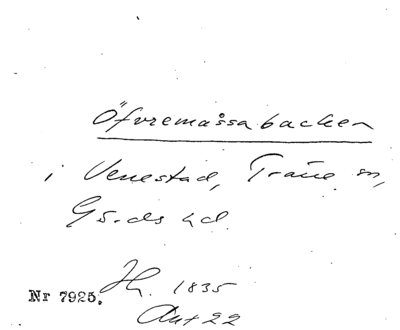 Öfvremåssabacken
i Venestad, Träne sn,
Gärds hd.
Hf. 1835
Nr 7925.
Aut 22